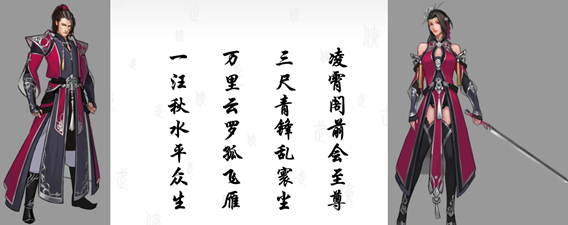 凌霄阁前会至尊
三尺青锋乱寰尘
万里云罗孤飞雁
一汪秋水平众生